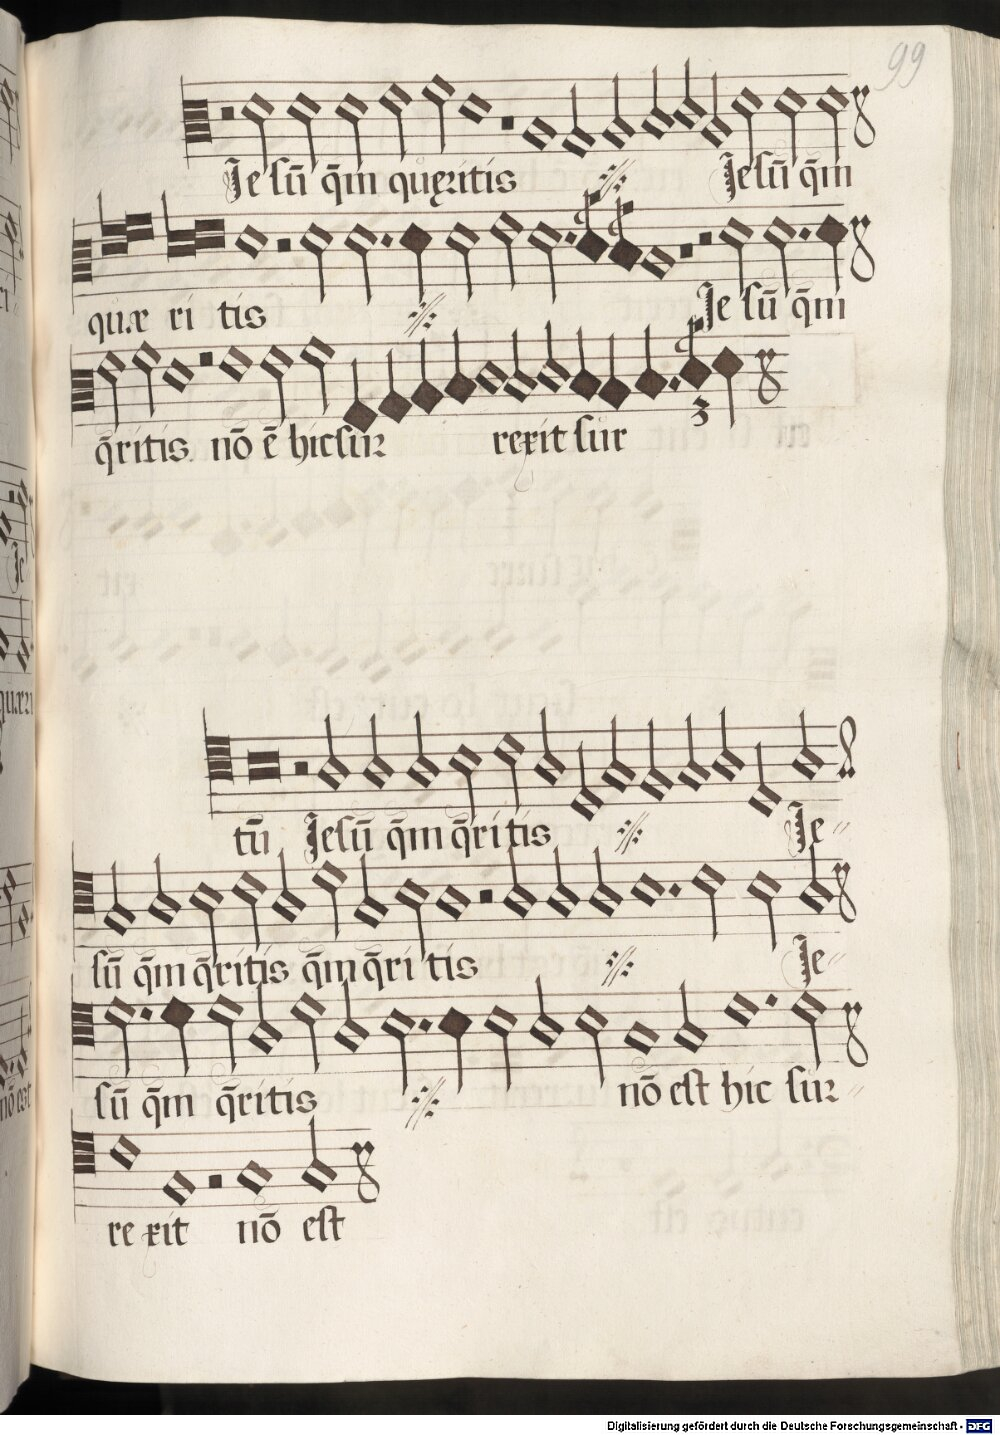 99
Jesū q̄m quęritis Jesū q̄m
quæ ri tis Je sū q̄m
q̄ritis. nō ē hic sur rexit sur
3
tū Jesū q̄m q̄ritis Je
sū q̄m q̄ritis q̄m q̄ri tis Je
sū q̄m q̄ritis nō est hic sur
re xit nō est
Digitalisierung gefördert durch die Deutsche Forschungsgemeinschaft - DFG